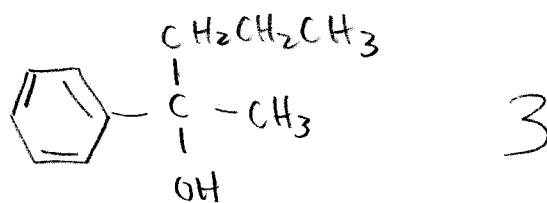 CH₂CH₂CH₃
C – CH₃
OH
3